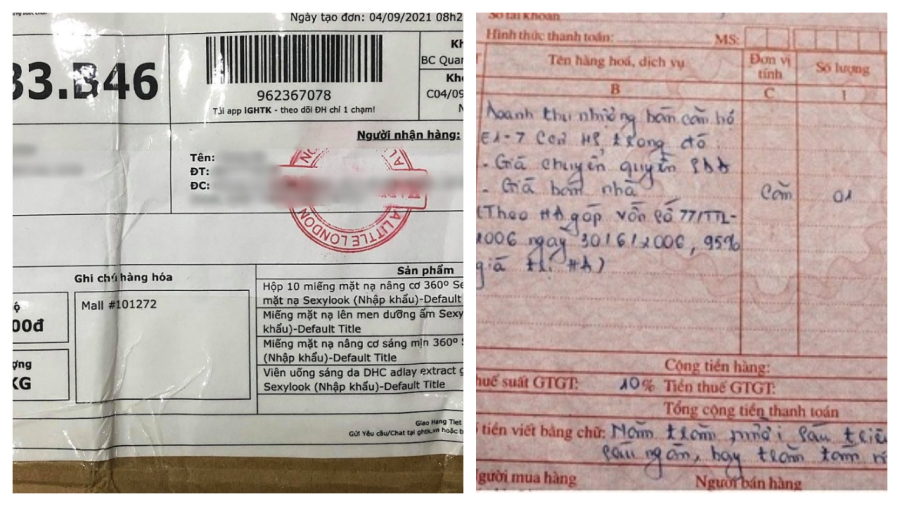 Ngày tạo đơn: 04/09/2021 08h2
33.B46
962367078
Tải app iGHTK - theo dõi ĐH chỉ 1 chạm!
BC Quan
C04/09
Người nhận hàng:
Tên:
ĐT:
ĐC:
A LITTLE LONDON
Ghi chú hàng hóa
Mall #101272
00đ
KG
Sản phẩm
Hộp 10 miếng mặt nạ nâng cơ 360º Se
mặt nạ Sexylook (Nhập khẩu)-Default
Miếng mặt nạ lên men dưỡng ẩm Sexy
khẩu)-Default Title
Miếng mặt nạ nâng cơ sáng mịn 360º S
(Nhập khẩu)-Default Title
Viên uống sáng da DHC adlay extract g
Sexylook (Nhập khẩu)-Default Title
Giao Hang Tiet
Gửi Yêu cầu/Chat tại ghtk.vn hoặc
Số tài khoản
Hình thức thanh toán: MS:
Tên hàng hoá, dịch vụ
Đơn vị tính
Số lượng
B C 1
Doanh thu nhượng bán căn hộ
E1-7 trong đó
- Giá chuyển quyền SDĐ
- Giá bán nhà
(Theo HĐ góp vốn số 77/TTL-
2006 ngày 30/6/2006, 95%
giá trị HĐ)
Căn 01
Cộng tiền hàng:
huế suất GTGT: 10% Tiền thuế GTGT:
Tổng cộng tiền thanh toán
ố tiền viết bằng chữ: Năm trăm mười sáu triệu
sáu ngàn, bảy trăm tám
gười mua hàng Người bán hàng